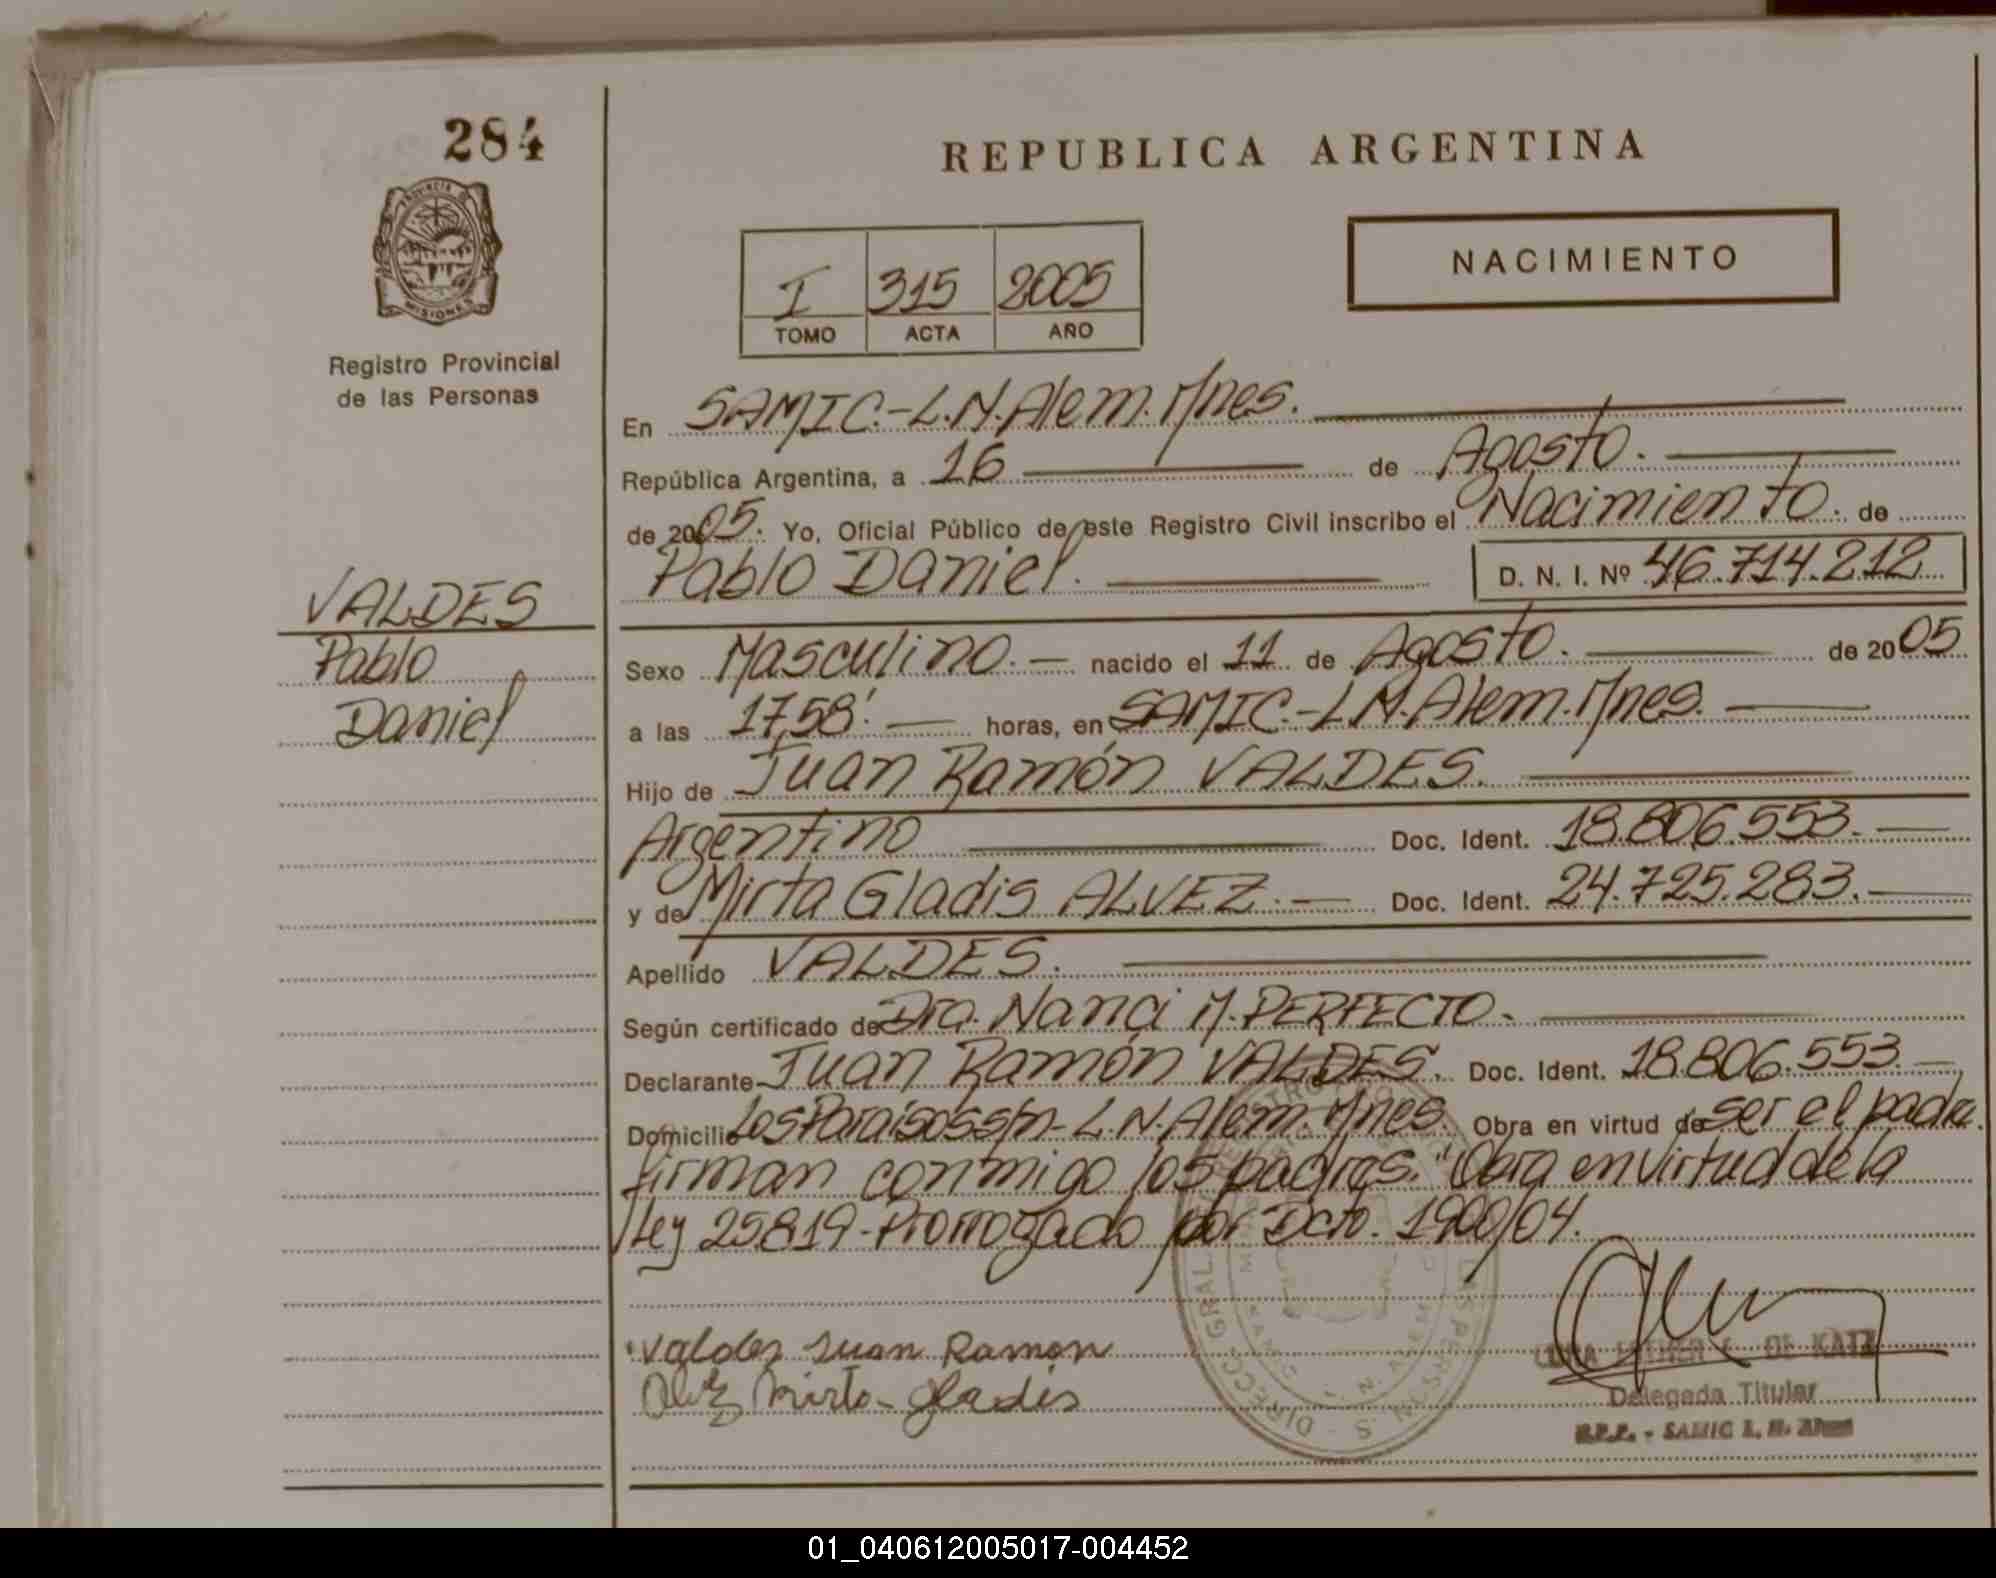 284
PROVINCIA
MISIONES
Registro Provincial
de las Personas
VALDES
Pablo
Daniel
REPUBLICA ARGENTINA
I 315 2005
TOMO ACTA AÑO
NACIMIENTO
En SAMIC.-L.N.Alem.Mnes.
República Argentina, a 16 de Agosto.
de 2005. Yo, Oficial Público de este Registro Civil inscribo el Nacimiento. de
Pablo Daniel. D. N. I. Nº 46.714.212
Sexo Masculino.- nacido el 11 de Agosto. de 2005
a las 17,58'. horas, en SAMIC.-L.N.Alem.Mnes.
Hijo de Juan Ramón VALDES.
Argentino Doc. Ident. 18.806.553.
y de Mirta Gladis ALVEZ.- Doc. Ident. 24.725.283.
Apellido VALDES.
Según certificado de Dra. Nanci M. PERFECTO.
Declarante Juan Ramón VALDES. Doc. Ident. 18.806.553.
Domicilio Los Paraísos s/n- L.N.Alem. Mnes. Obra en virtud de ser el padre.
firman conmigo los padres. "Obra en virtud de la
Ley 25819-Prorrogado por Dcto. 1900/04.
Valdes Juan Ramon
Alvez Mirta Gladis
DE KATZ
Delegada Titular
R.P.P. - SAMIC L. N. Alem
01_040612005017-004452